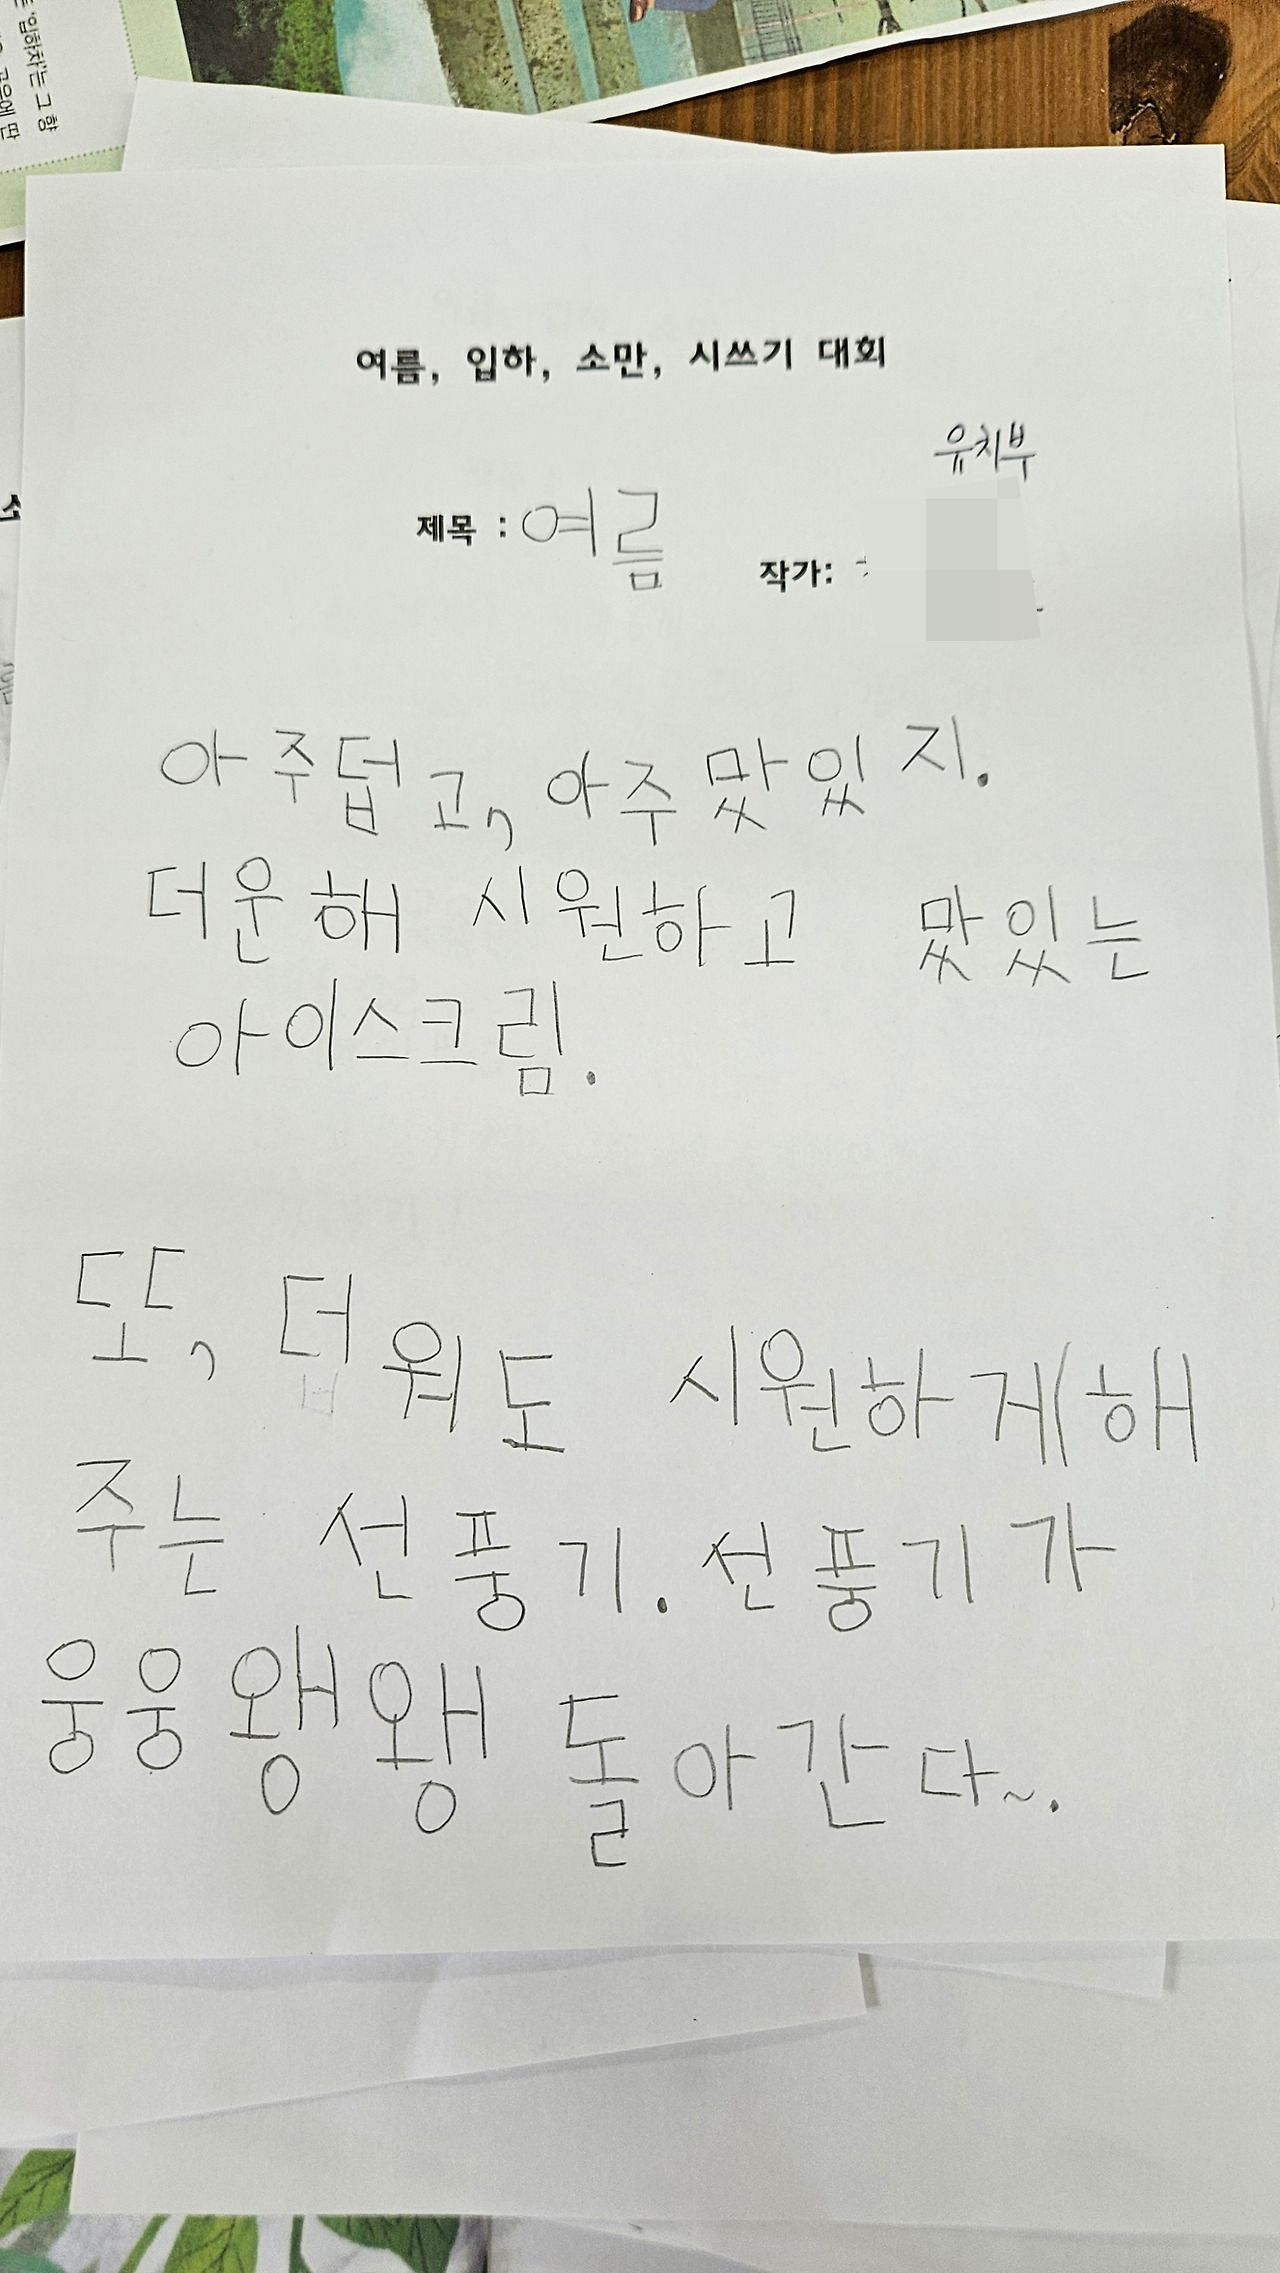 여름, 입하, 소만, 시쓰기 대회
유치부
제목 : 여름
작가:
아주덥고, 아주 맛있지.
더운해 시원하고 맛있는
아이스크림.
또, 더워도 시원하게해
주는 선풍기. 선풍기가
웅웅왱왱 돌아간다~.